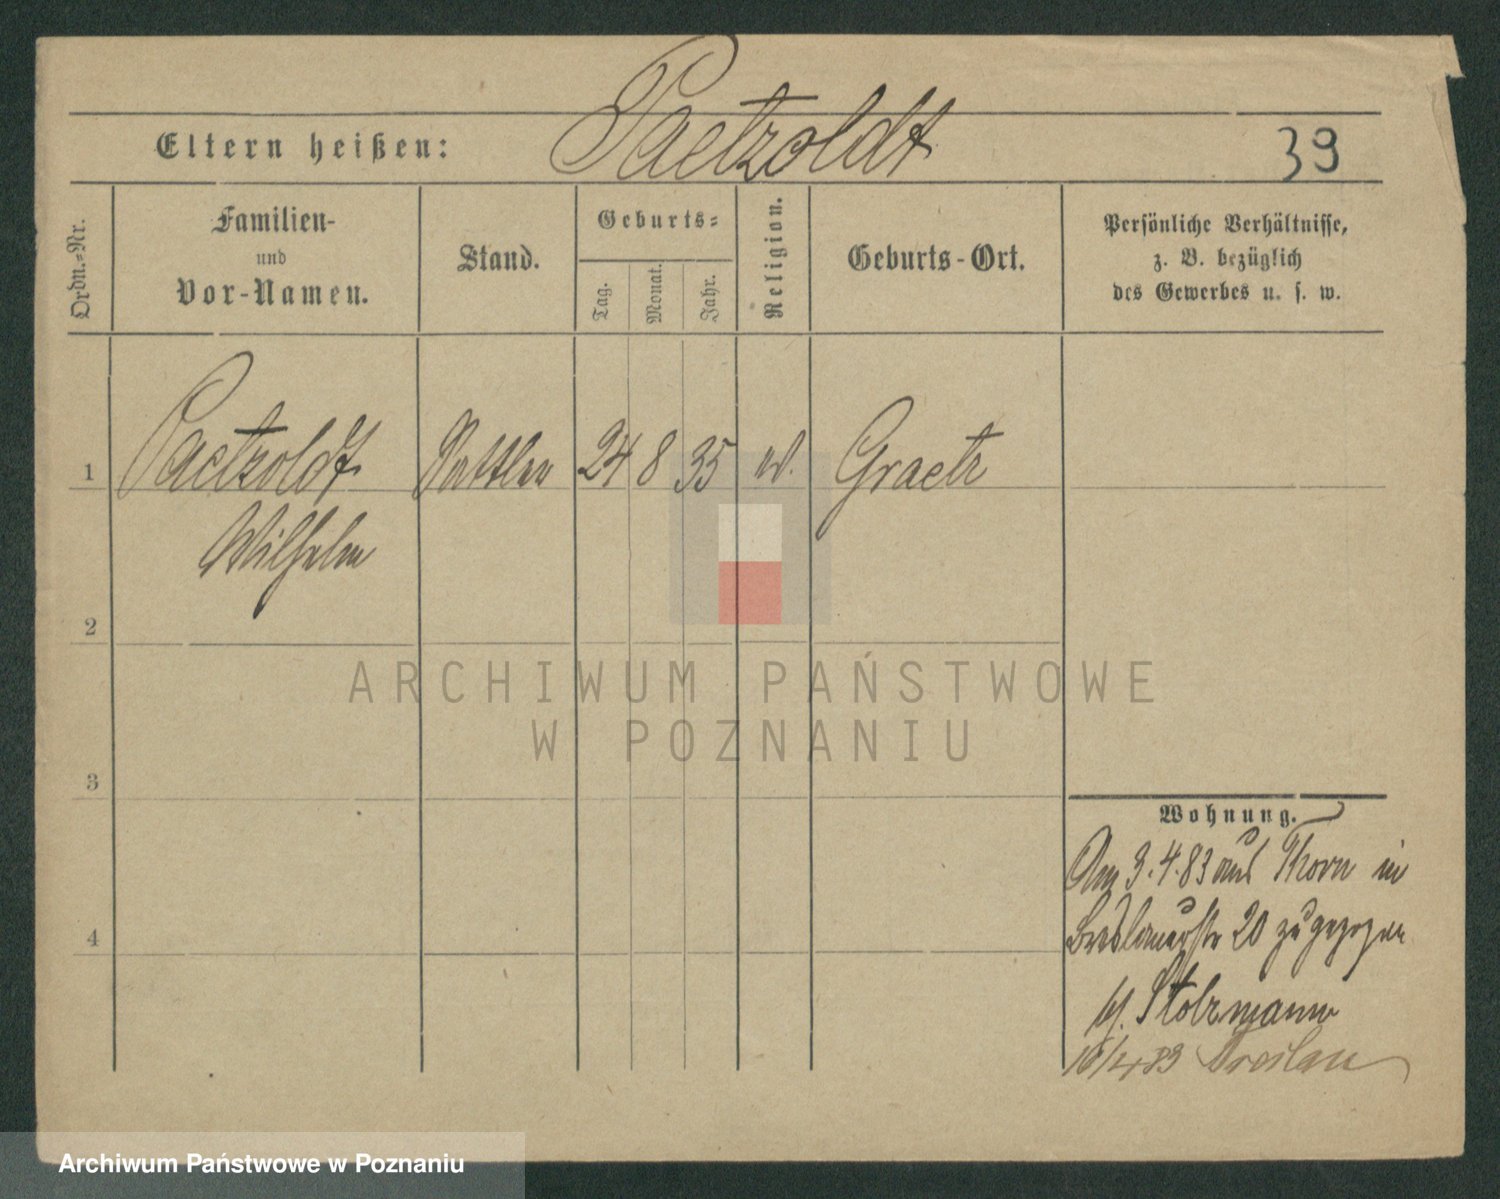 Paetzoldt
Eltern heißen:
39
Ordn.=Nr.
Familien-
und
Vor-Namen.
Stand.
Geburts=
Tag.
Monat.
Jahr.
Religion.
Geburts-Ort.
Persönliche Verhältnisse,
z. B. bezüglich
des Gewerbes u. s. w.
1
Paetzoldt
Sattler
24
8
35
Graetz
Wilhelm
2
ARCHIWUM PAŃSTWOWE
W POZNANIU
3
Wohnung.
Am 3.4.83 aus Thorn in
Breslauerstr 20 zugezogen
4
bei Stolzmann
Archiwum Państwowe w Poznaniu